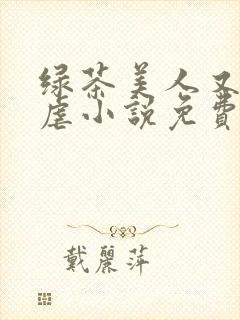 绿茶美人又
虐小說免費
戴麗萍